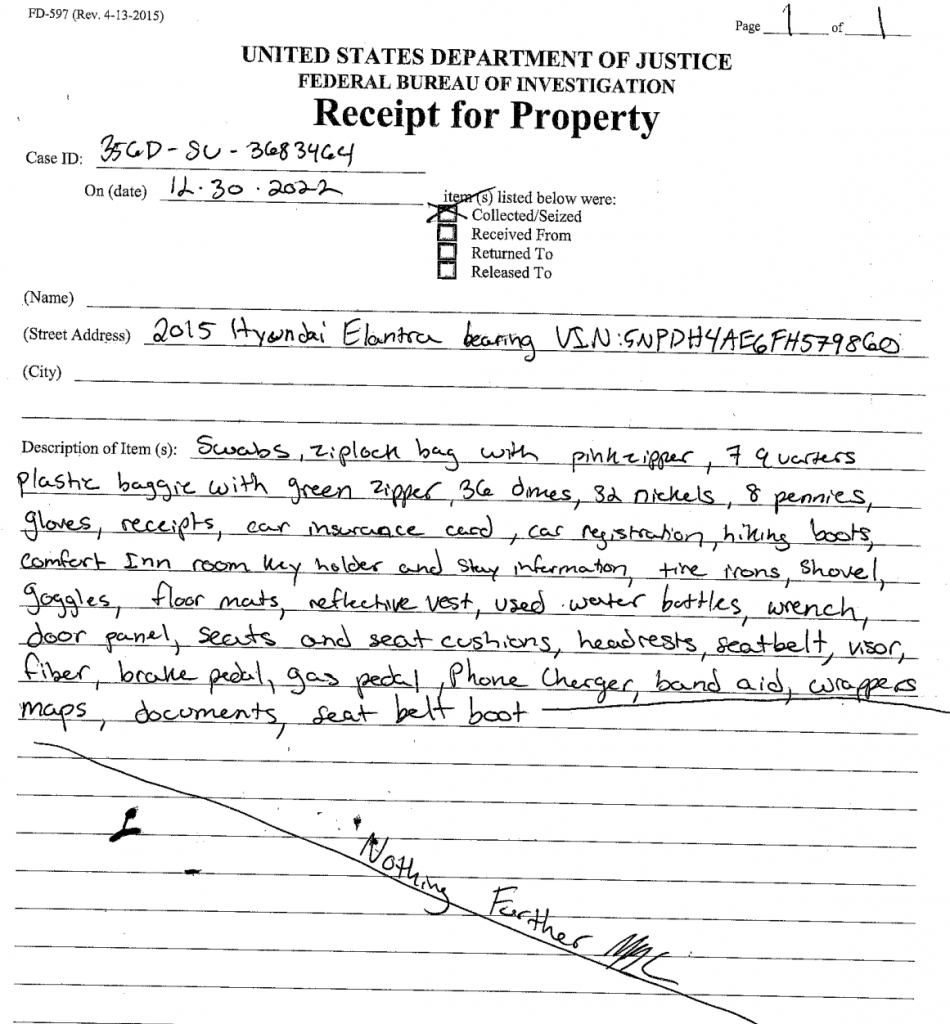 FD-597 (Rev. 4-13-2015)
Page 1 of 1
UNITED STATES DEPARTMENT OF JUSTICE
FEDERAL BUREAU OF INVESTIGATION
Receipt for Property
Case ID: 356D-SU-3683464
On (date) 12.30.2022
item(s) listed below were:
Collected/Seized
Received From
Returned To
Released To
(Name)
(Street Address) 2015 Hyundai Elantra bearing VIN:5NPDH4AE6FH579860
(City)
Description of Item (s): Swabs, ziplock bag with pink zipper, 7 quarters
plastic baggie with green zipper, 36 dimes, 32 nickels, 8 pennies,
gloves, receipts, car insurance card, car registration, hiking boots,
comfort Inn room key holder and stay information, tire irons, shovel,
goggles, floor mats, reflective vest, used water bottles, wrench,
door panel, seats and seat cushions, headrests, seatbelt, visor,
fiber, brake pedal, gas pedal, Phone Charger, band aid, wrappers
maps, documents, seat belt boot
Nothing Further